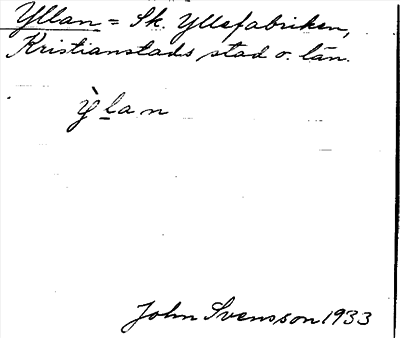 Yllan = Sk. Yllefabriken,
Kristianstads stad o. län.
ỳlan
John Svensson 1933